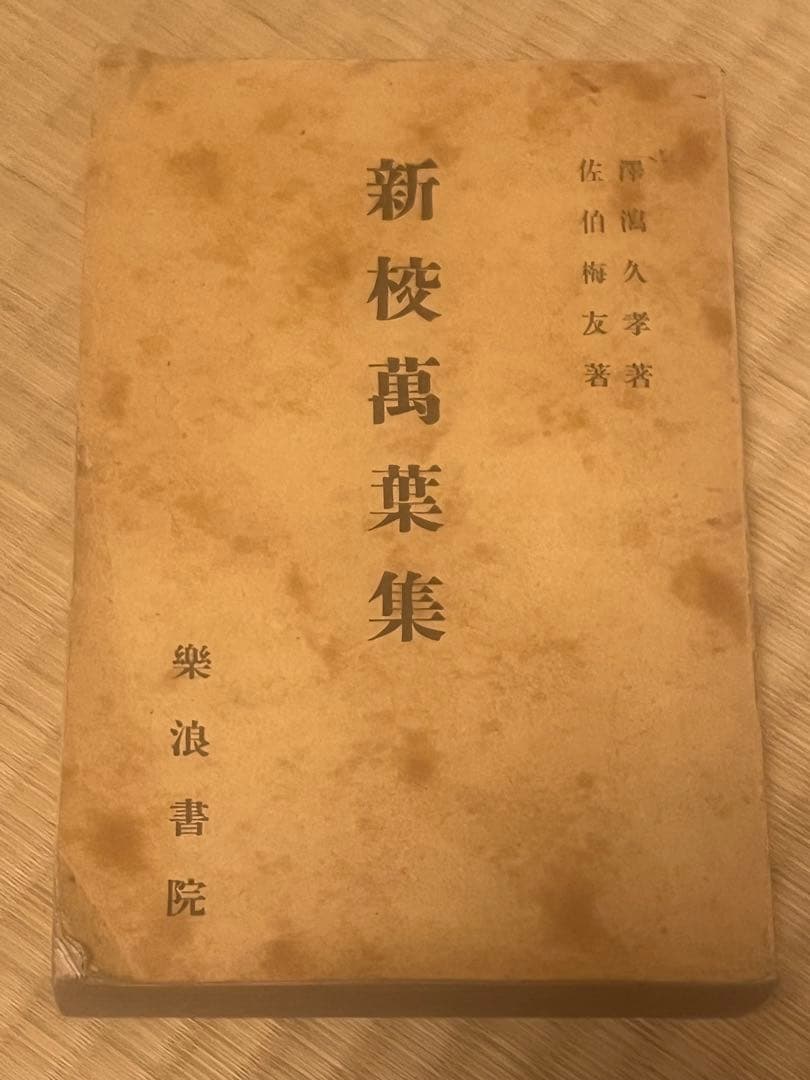 澤瀉久孝著
佐伯梅友著
新校萬葉集
樂浪書院